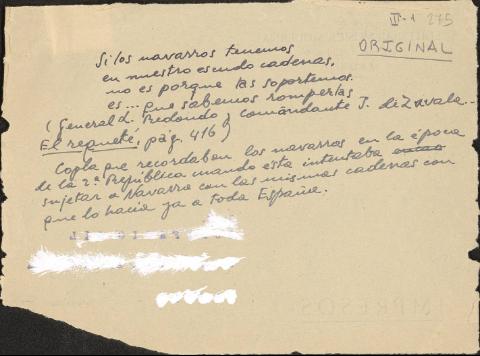 II-1 275
ORIGINAL
Si los navarros tenemos
en nuestro escudo cadenas,
no es porque las soportemos.
es... que sabemos romperlas
(General L. Redondo y comandante J. de Zavala -
El requeté, pág. 416)
Copla que recordaban los navarros en la época
de la 2ª República cuando esta intentaba
sujetar a Navarra con las mismas cadenas con
que lo hacía ya a toda España.
MPRESOS